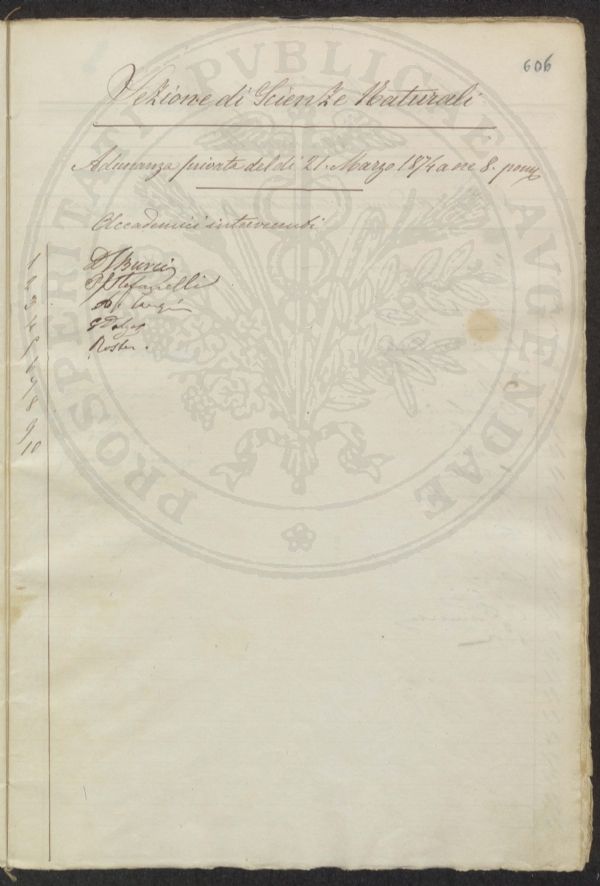 606
Sezione di Scienze Naturali
Adunanza privata del dì 21. Marzo 1874 a ore 8. pom
Accademici intervenuti
1
2
3
4
5
6
7
8
9
10
Burci
P. Stefanelli
Roster.
PROSPERITATI PVBLICAE AVGENDAE